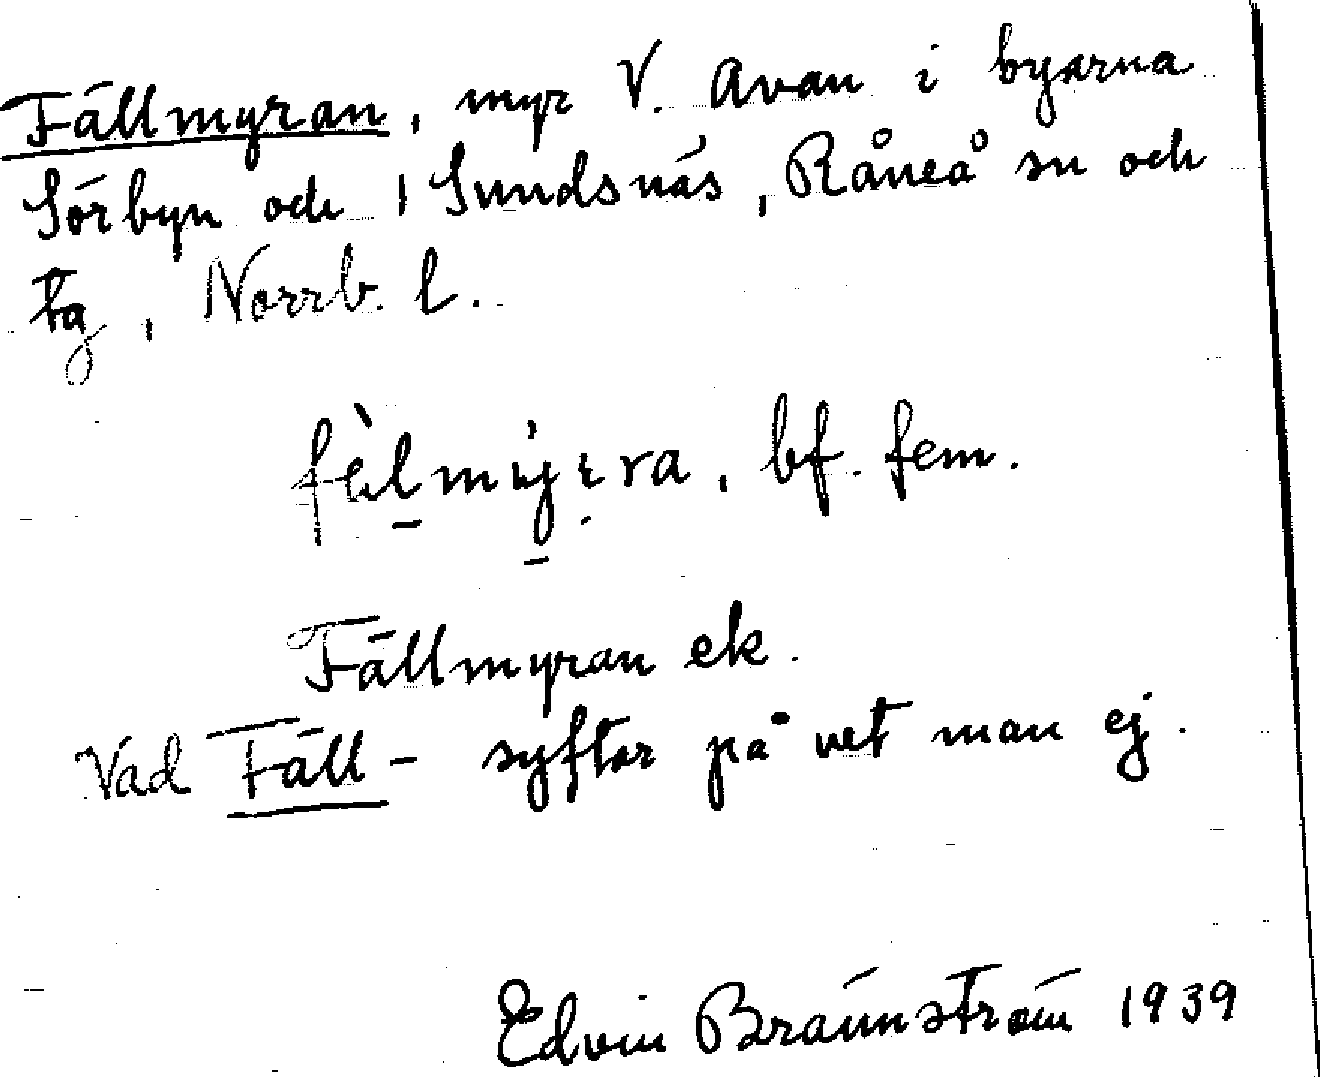 Fällmyran, myr V. Avan i byarna
Sörbyn och Sundsnäs, Råneå sn och
tg, Norrb. l.
bf. fem.
Fällmyran ek.
Vad Fäll- syftar på vet man ej.
Edvin Brännström 1939